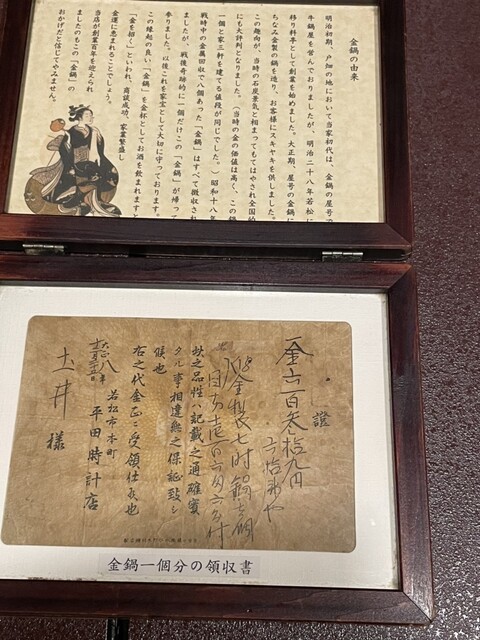 金鍋の由来
明治初期、戸畑の地において当家初代は、金鍋の屋号で
牛鍋屋を営んでおりましたが、明治二十八年若松に
移り料亭として創業を始めました。大正期、屋号の金鍋に
ちなみ金製の鍋を造り、お客様にスキヤキを供しました。
この趣向が、当時の石炭景気と相まってもてはやされ全国的
にも大評判となりました。(当時の金の価値は高く、この鍋
一個と家三軒を建てる値段が同じでした。)昭和十八年
戦時中の金属回収で八個あった「金鍋」はすべて徴収され
ましたが、戦後奇跡的に一個だけこの「金鍋」が帰って
参りました。以後これを家宝として大切に守っております。
この縁起の良い「金鍋」を金杯としてお酒を飲まれますと
「金を招く」といわれ、商談成功、家業繁盛し
金運に恵まれることでしょう。
当店が創業百年を迎えられ
ましたのもこの「金鍋」の
おかげだと信じてやみません。
證
一金六百参拾九円
六拾銭也
金
七吋鍋壱個
此之品性ハ記載之通確実
ナル事相違無之保証致シ
候也
右之代金正ニ受領仕候也
大正八年
十二月三十五日
若松市本町
平田時計店
土井様
金鍋一個分の領収書